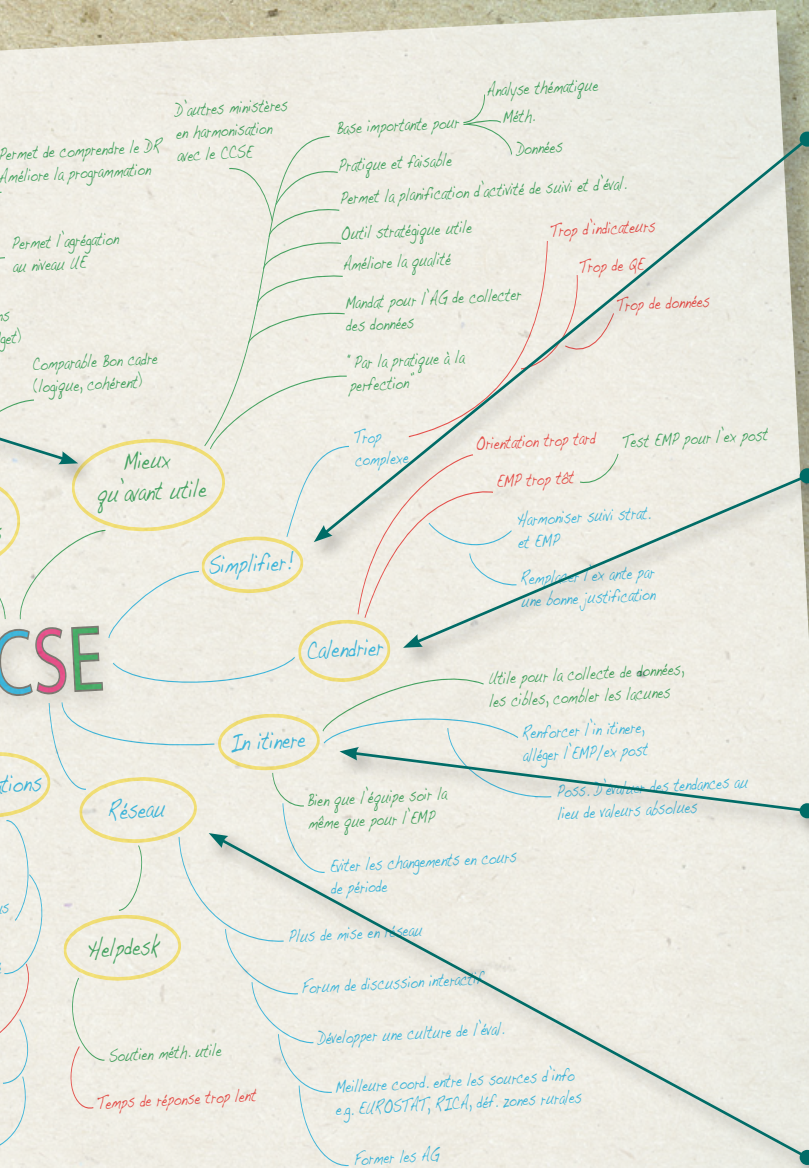 D'autres ministères
en harmonisation
avec le CCSE
Permet de comprendre le DR
Améliore la programmation
Permet l'agrégation
au niveau UE
Comparable Bon cadre
(logique, cohérent)
Mieux
qu'avant utile
Base importante pour
Analyse thématique
Méth.
Données
Pratique et faisable
Permet la planification d'activité de suivi et d'éval.
Outil stratégique utile
Améliore la qualité
Mandat pour l'AG de collecter
des données
"Par la pratique à la
perfection"
Trop d'indicateurs
Trop de QE
Trop de données
Trop
complexe
Simplifier!
Orientation trop tard
EMP trop tôt
Test EMP pour l'ex post
Harmoniser suivi strat.
et EMP
Remplacer l'ex ante par
une bonne justification
Calendrier
CSE
In itinere
Utile pour la collecte de données,
les cibles, combler les lacunes
Renforcer l'in itinere,
alléger l'EMP/ex post
Poss. D'évaluer des tendances au
lieu de valeurs absolues
Bien que l'équipe soir la
même que pour l'EMP
Eviter les changements en cours
de période
Réseau
Helpdesk
Soutien méth. utile
Temps de réponse trop lent
Plus de mise en réseau
Forum de discussion interactif
Développer une culture de l'éval.
Meilleure coord. entre les sources d'info
e.g. EUROSTAT, RICA, déf. zones rurales
Former les AG